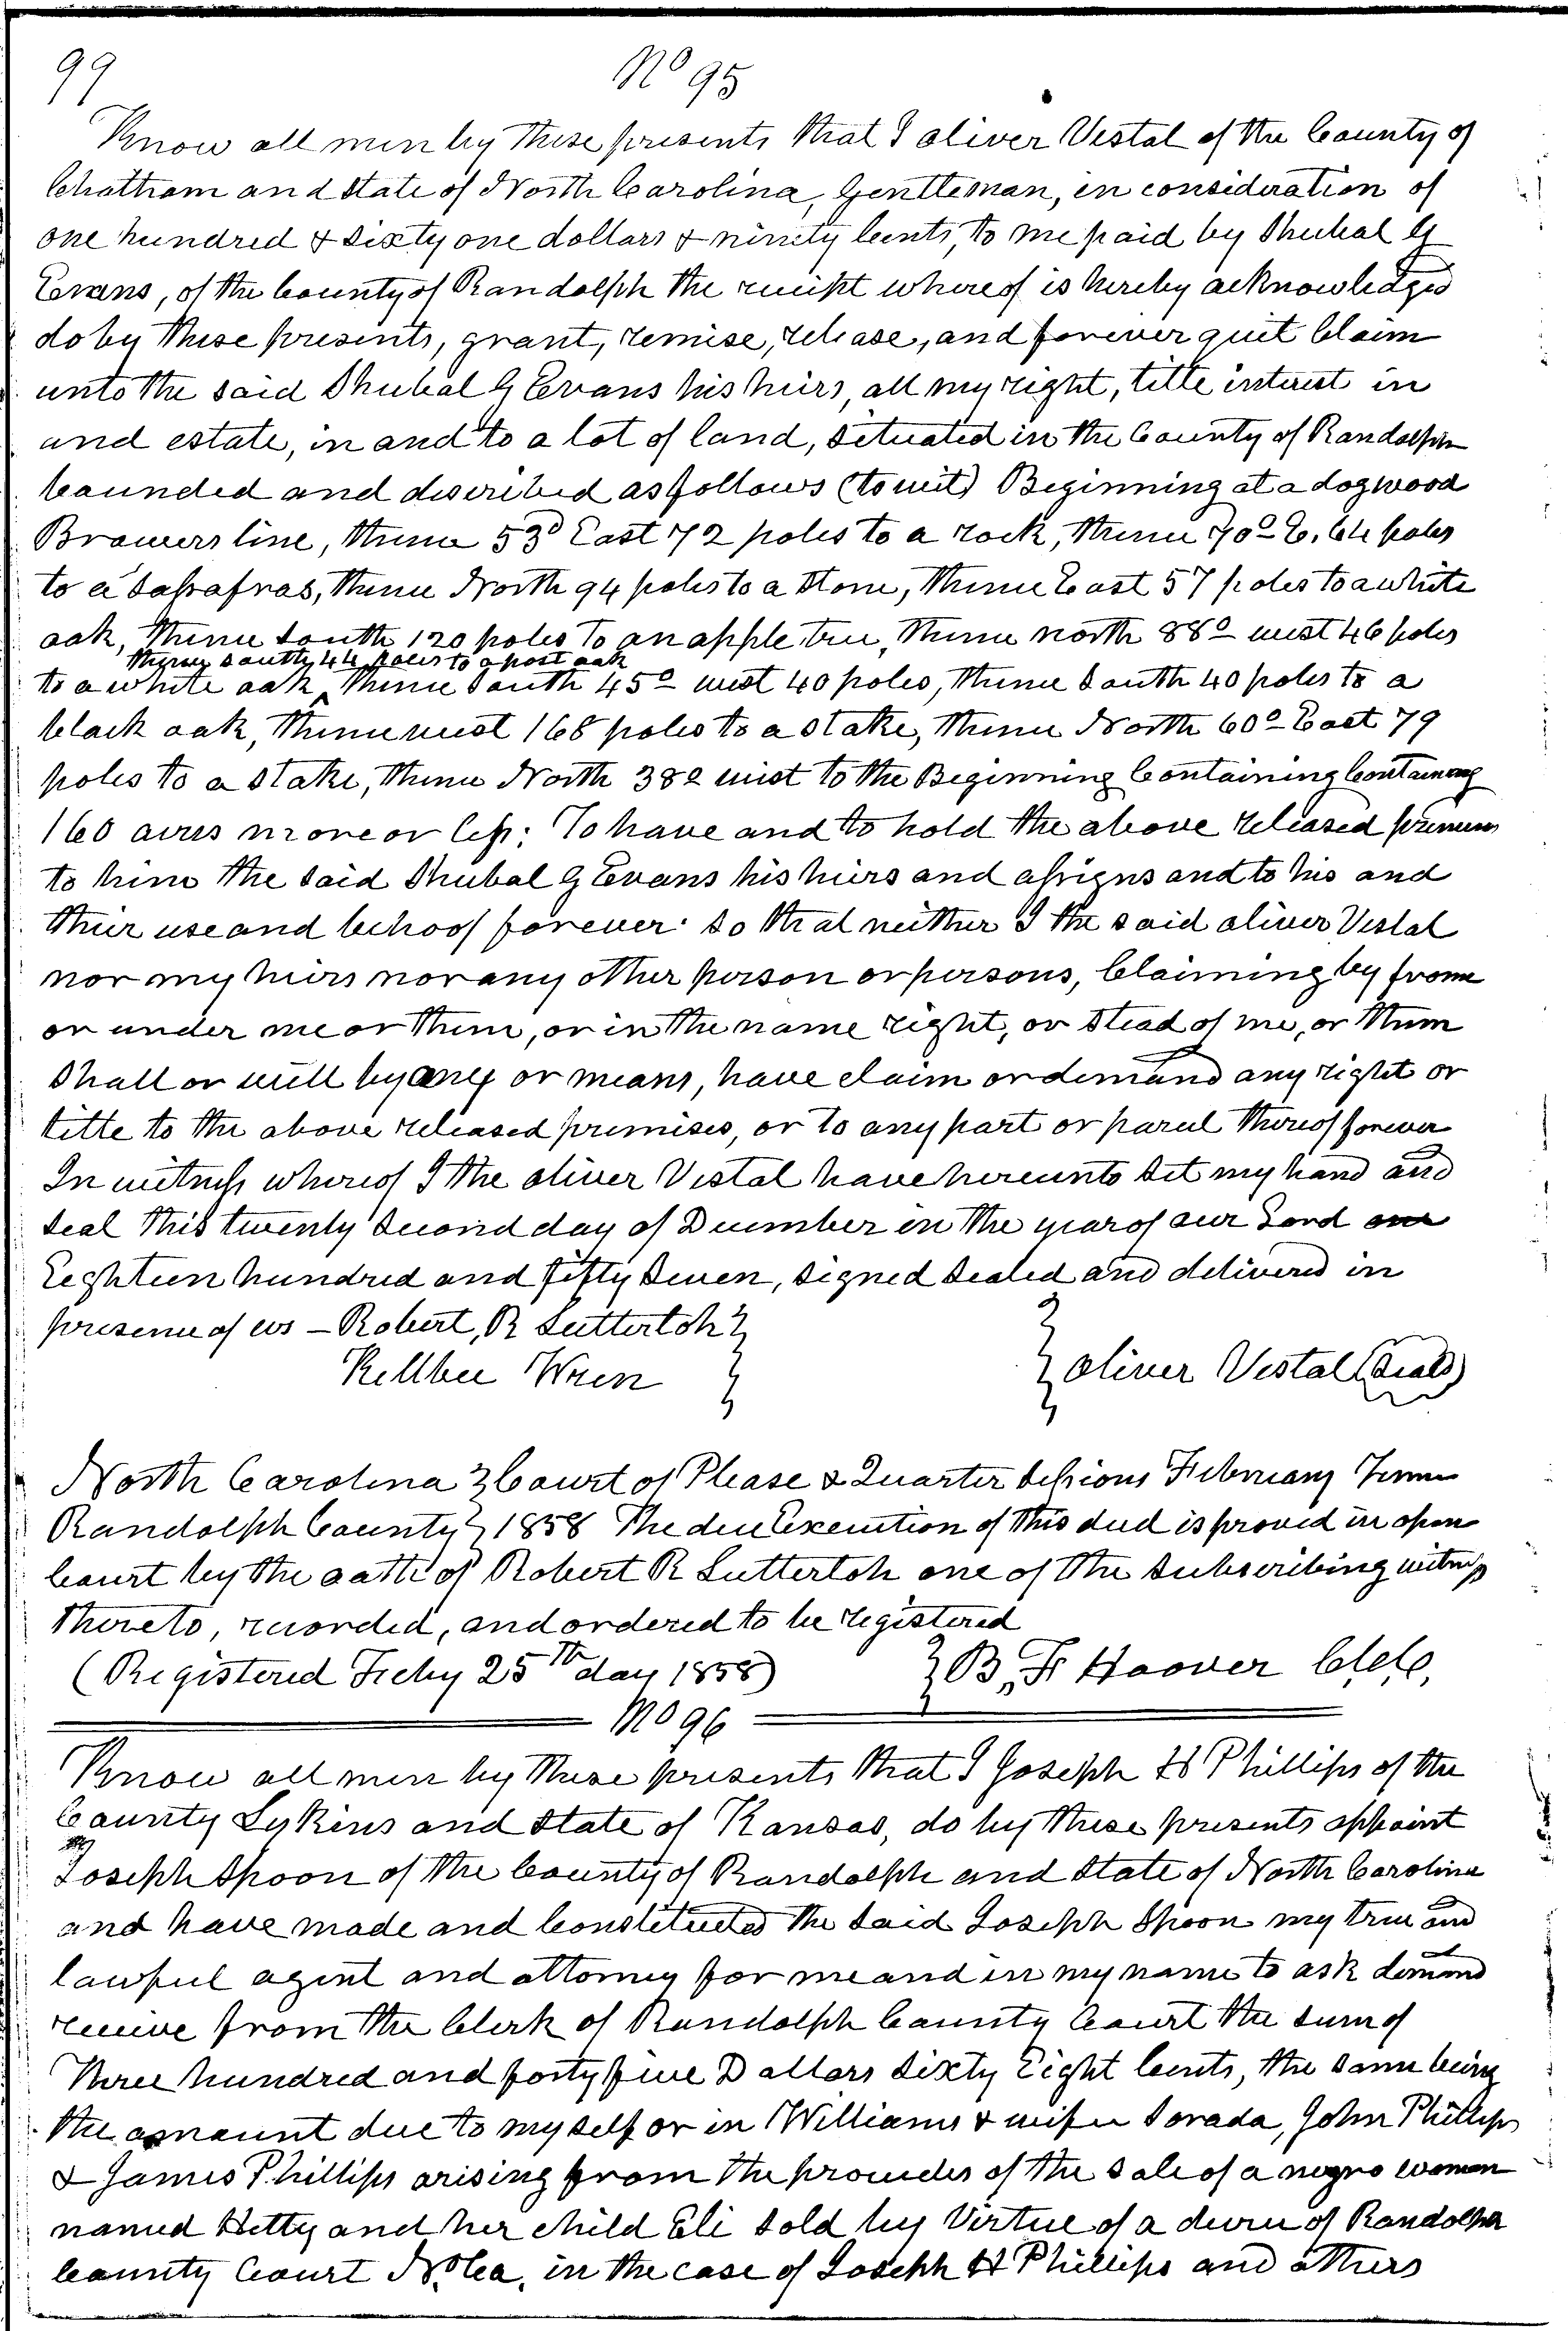 99
No 95
Know all men by these presents that I Oliver Vestal of the County of
Chatham and State of North Carolina, Gentleman, in consideration of
one hundred & sixty one dollars & ninety Cents, to me paid by Shubal G
Evans, of the County of Randolph the receipt whereof is hereby acknowledged
do by these presents, grant, remise, release, and forever quit Claim
unto the said Shubal G Evans his heirs, all my right, title interest in
and estate, in and to a lot of land, situated in the County of Randolph
bounded and described as follows (to wit) Beginning at a dogwood
Browers line, thence 53° East 72 poles to a rock, thence 70° E. 64 poles
to a Sassafras, thence North 94 poles to a Stone, thence East 57 poles to a white
oak, thence South 120 poles to an apple tree, thence north 88° west 46 poles
thence South 44 poles to a post oak
to a white oak ‸ thence South 45° west 40 poles, thence South 40 poles to a
black oak, thence west 168 poles to a stake, thence North 60° East 79
poles to a stake, thence North 38° west to the Beginning Containing Containing
160 acres more or less: To have and to hold the above released premises
to him the said Shubal G Evans his heirs and assigns and to his and
their use and behoof forever. So that neither I the said Oliver Vestal
nor my heirs nor any other person or persons, Claiming by from
or under me or them, or in the name right, or stead of me, or them
Shall or will by any or means, have claim or demand any right or
title to the above released premises, or to any part or parcel thereof forever
In witness whereof I the Oliver Vestal have hereunto set my hand and
seal this twenty second day of December in the year of our Lord one
Eighteen hundred and fifty seven, signed sealed and delivered in
presence of us – Robert, R Suttertoh }
Kellbee Wren }
} Oliver Vestal (Seal)
North Carolina } Court of Please & Quarter Sessions February Term
Randolph County } 1858 The due Execution of this deed is proved in open
Court by the oath of Robert R Suttertoh one of the subscribing witness
thereto, recorded, and ordered to be registered
(Registered Feby 25th day 1858) } B, F Hoover C,C,C,
No 96
Know all men by these presents that I Joseph H Phillips of the
County Lykins and State of Kansas, do by these presents appoint
Joseph Spoon of the County of Randolph and State of North Carolina
and have made and Constituted the said Joseph Spoon my true and
lawful agent and attorney for me and in my name to ask demand
receive from the Clerk of Randolph County Court the sum of
Three hundred and forty five Dollars sixty Eight Cents, the same being
the amount due to myself or in Williams & wife Sorada, John Phillips
& James Phillips arising from the proceeds of the sale of a negro woman
named Hetty and her child Eli sold by Virtue of a decree of Randolph
County Court N.Ca. in the case of Joseph H Phillips and others